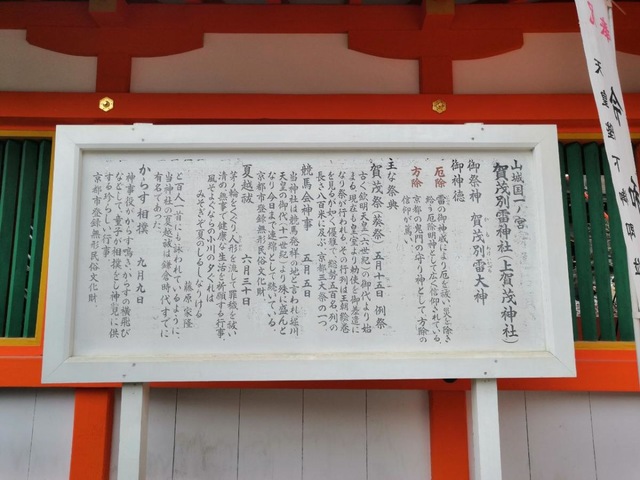 山城国一ノ宮
賀茂別雷神社(上賀茂神社)
御祭神 賀茂別雷大神
御神徳
厄除 雷の御神威により厄を祓い災を除き
給う厄除明神として広く信仰されている
方除 京都の鬼門の守り神として方除の
信仰が篤い
主な祭典
賀茂祭(葵祭) 五月十五日 例祭
古く欽明天皇(六世紀)の御代より始
まる。現在も皇室より勅使を御差遣に
なり祭が行われる。その行列は王朝絵巻
を見るが如く優雅で総勢五百名、列の
長さ八百米に及ぶ。京都三大祭の一つ。
競馬会神事 五月五日
当神社は競馬発祥の地と言われ堀川
天皇の御代(十一世紀)より殊に盛んと
なり今日まで連綿として続いている。
京都市登録無形民俗文化財
夏越祓 六月三十日
茅ノ輪をくぐり人形を流して罪穢を祓い
清め無事で健康な生活を祈願する行事
風そよぐならの小川の夕ぐれは
みそぎぞ夏のしるしなりける
藤原家隆
と百人一首にも詠われているように、
当神社の夏越祓は鎌倉時代すでに
有名であった。
からす相撲 九月九日
神事役がからす鳴きからすの横飛び
などをして童子が相撲をとし神覧に供
する珍らしい行事
京都市登録無形民俗文化財
天皇陛下